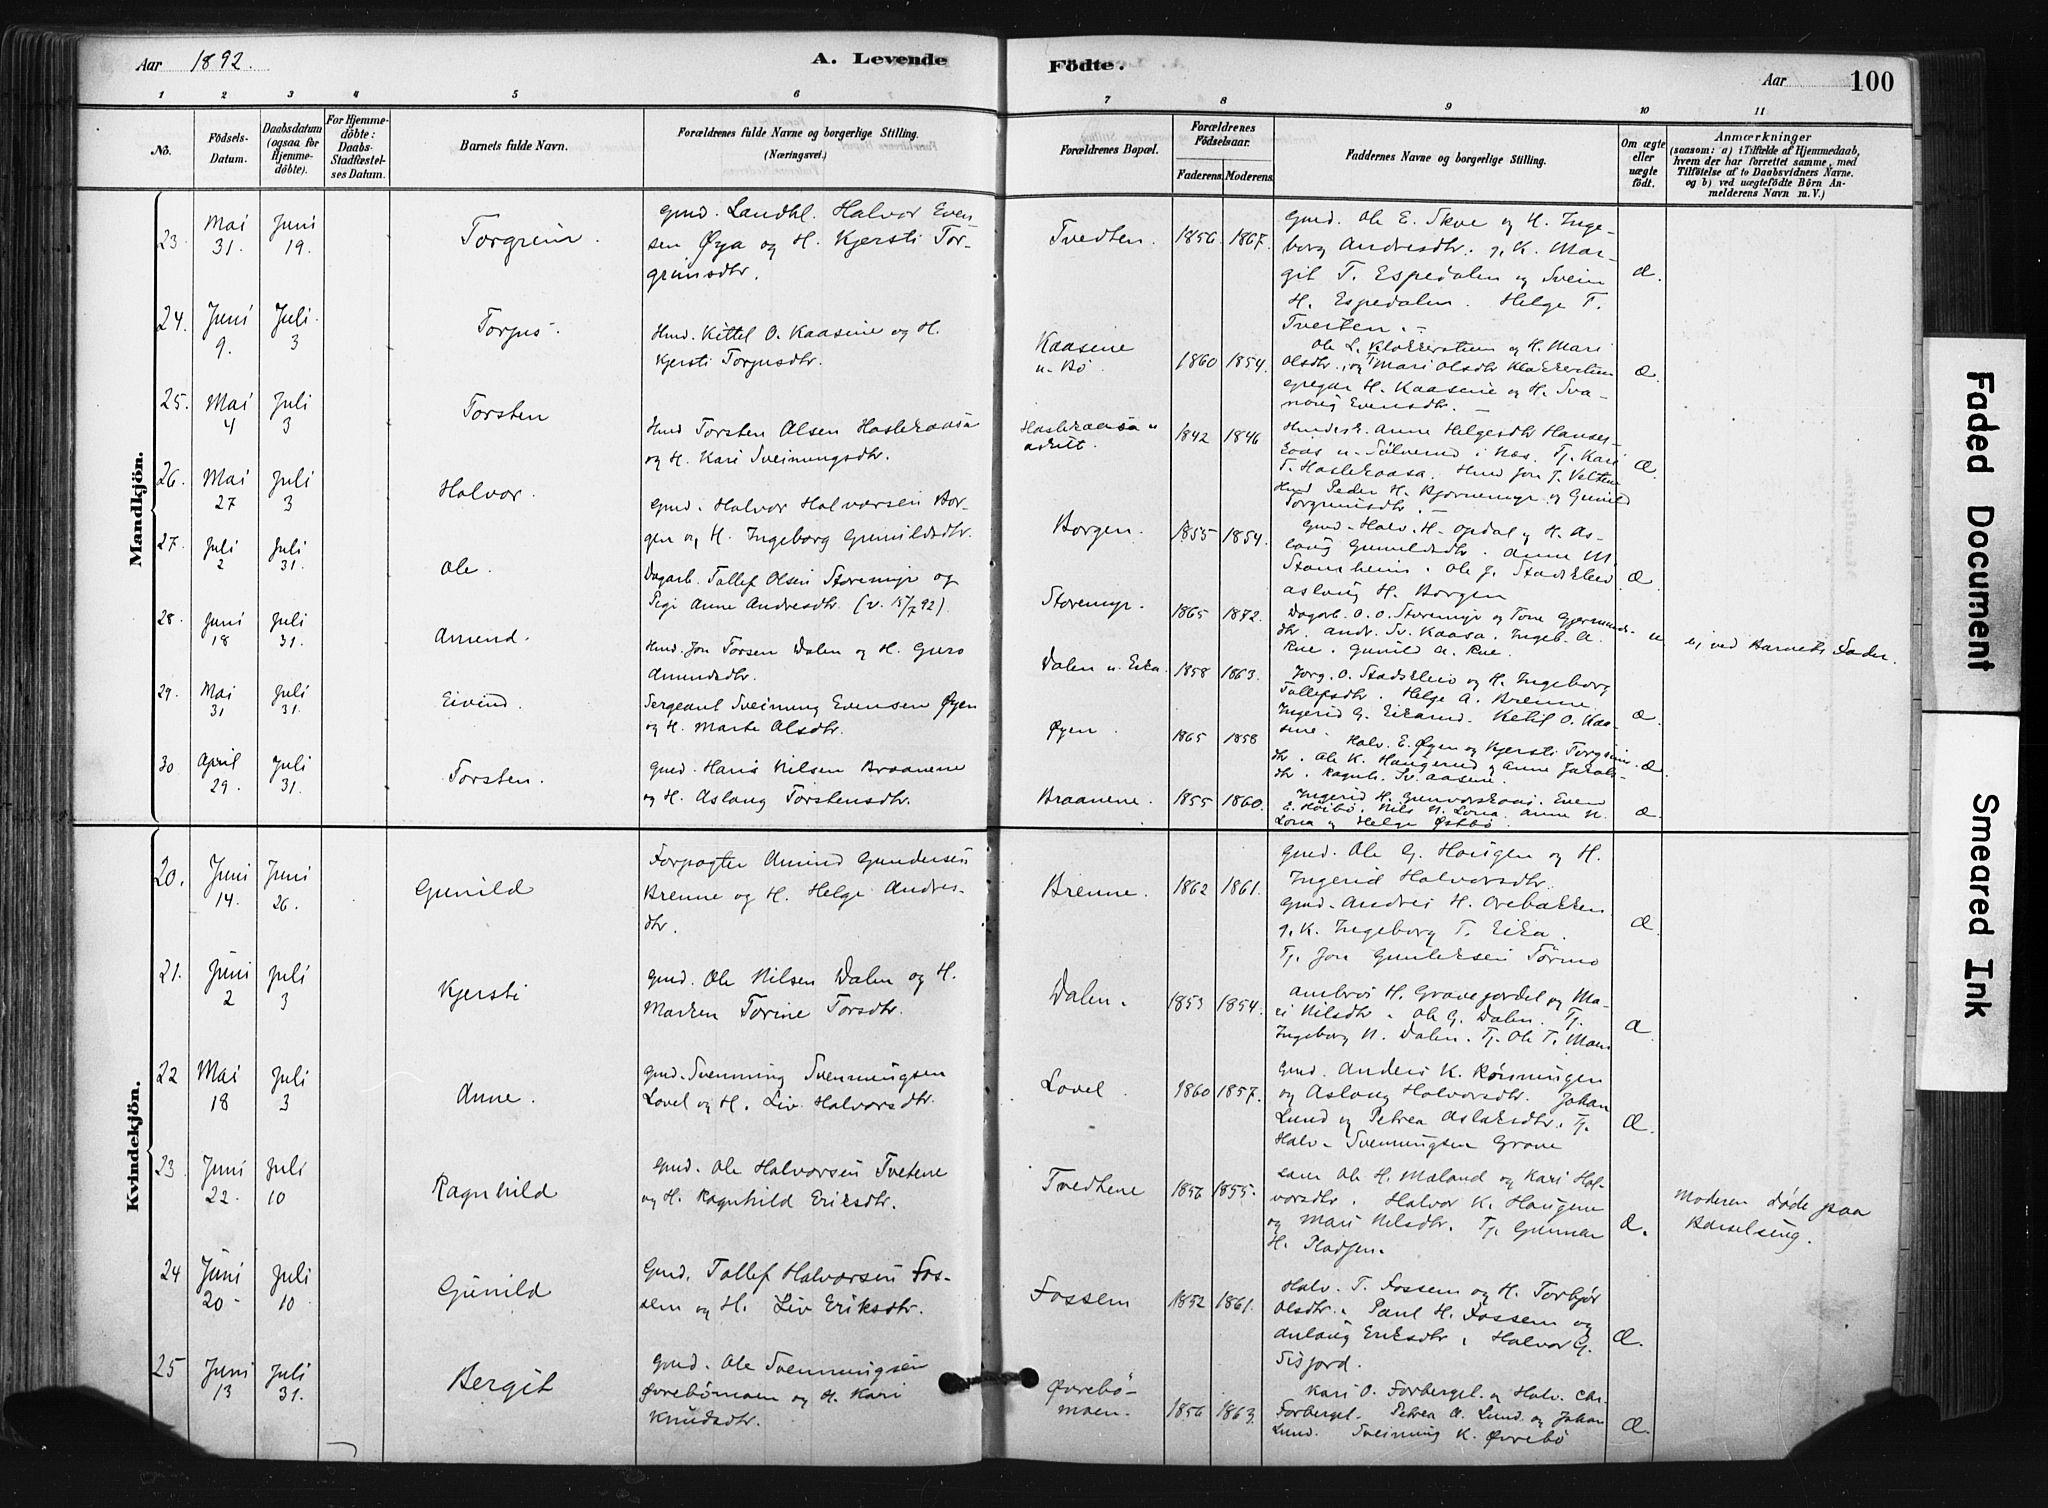 Aar 1892.
A. Levende Födte.
Aar 100
1 2 3 4 5 6 7 8 9 10 11
No.
Födsels-Datum.
Daabsdatum (ogsaa for Hjemme-döbte).
For Hjemme-döbte: Daabs-Stadfæstel-ses Datum.
Barnets fulde Navn.
Forældrenes fulde Navne og borgerlige Stilling.
(Næringsvei.)
Forældrenes Bopæl.
Forældrenes Födselsaar.
Faderens. Moderens.
Faddernes Navne og borgerlige Stilling.
Om ægte eller uægte födt.
Anmærkninger
(saasom: a) i Tilfælde af Hjemmedaab,
hvem der har forrettet samme, med
Tilföielse af to Daabsvidners Navne.
og b) ved uægtefödte Börn An-
melderens Navn m. V.)
Mandkjön.
23. Mai 31. Juni 19. Torgrim.
Gmd. Landhl. Halvor Even-
sen Øya og H. Kjersti Tor-
grimsdtr.
Tvedten. 1856. 1867.
Gmd. Ole E. Skoe og H. Inge-
borg Andresdtr. g. K. Mar-
git T. Espedalen og Svein
H. Espedalen. Helge T.
Tveiten.
Æ.
24. Juni 9. Juli 3 Torjus.
Hmd. Kittel O. Kaasine og H.
Kjersti Torjusdtr.
Kaasene
u. Bø. 1860 1854.
Ole L. Klokkerstien og H. Mari
Olsdtr., og Mari Olsdtr Klokkerstien
Gregar H. Kaasene og H. Sva-
naug Evensdtr.
Æ.
25. Mai 4 Juli 3 Torsten
Hmd Torsten Olsen Haslekaasa
og H. Kari Sveinungsdtr.
Haslekaasa u 1842 1846
Anne Helgesdtr
i Næs. Tj. Kari
T. Haslekaasa. Hmd Jon T. Velten
Æ.
26. Mai 27 Juli 3 Halvor.
Gmd. Halvor Halvorsen Bor-
gen og H. Ingeborg Gunnildsdtr.
Borgen. 1855 1854.
Hmd Peder H. Bjørnemyr og Gunild
Torgrimsdtr.
Gmd. Halv. H. Opdal og H. As-
laug Gunildsdtr. Anne M.
Stanheim. Ole J. Stadskleiv
Aslaug H. Borgen
Æ
27. Juli 2 Juli 31. Ole.
Dagarb. Tollef Olsen Storemyr og
Pige Anne Andresdtr. (v. 15/7 92).
Storemyr. 1865 1872.
Dagarb. O. O. Storemyr og Tone Gjermunds-
dtr. Andr. Sv. Kaasa. Ingeb. A.
Rue. Gunild A. Rue.
u
ej ved Barnets Fader.
28. Juni 18 Juli 31. Amund.
Hmd. Jon Torsen Dalen og H. Guro
Amundsdtr.
Dalen u. Eika. 1858 1863.
Jørg. O. Stadskleiv og H. Ingeborg
Tollefsdtr. Helge A. Brenne
Ingerid G. Eikamd. Ketil O. Kaa-
sene.
Æ.
29. Mai 31 Juli 31. Eivind.
Sergeant Sveinung Evensen Øyen
og H. Marte Olsdtr.
Øyen. 1865 1858
Halv. E. Øyen og Kjersti Torgrims-
dtr. Ole K. Haugerud og Anne Jarals-
dtr. Ragnh. Sv. Aasene.
Æ.
30 April 29. Juli 31. Torsten.
Gmd. Hans Nilsen Braanene
og H. Aslaug Torstensdtr.
Braanene. 1855 1860.
Ingerid H. Gunvorskaas. Even
E. Høibø. Nils N. Lona. Anne N.
Lona og Helge Østbø.
Æ.
Kvindekjön.
20. Juni 14. Juni 26. Gunild
Forpagter Amund Gundersen
Brenne og H. Helge Andres-
dtr.
Brenne. 1862 1861.
Gmd. Ole G. Haugen og H.
Ingerid Halvorsdtr.
Gmd. Andres H. Orebakken.
g. K. Ingeborg T. Eika.
Tj. Jon Gunleksen Tørmo
Æ.
21. Juni 2 Juli 3 Kjersti
Gmd. Ole Nilsen Dalen og H.
Maren Torine Torsdtr.
Dalen. 1853 1854.
Ambros H. Gravgjordet og Ma-
ri Nilsdtr. Ole G. Dalen. Tj.
Ingeborg N. Dalen. Tj. Ole T. Moen
Æ.
22 Mai 18 Juli 3 Anne.
Gmd. Svenning Svenningsen
Lovel og H. Liv Halvorsdtr.
Lovel. 1860 1857.
Gmd. Anders K. Rønningen
og Aslaug Halvorsdtr. Johan
Lund og Petrea Aslaksdtr. Tj.
Halv. Svenningsen Grave
Æ.
23. Juni 22. Juli 10 Ragnhild
Gmd. Ole Halvorsen Tvetene
og H. Ragnhild Eriksdtr.
Tvedtene 1856 1855.
Ole H. Maland og Kari Hal-
vorsdtr. Halvor K. Haugene
og Mari Nilsdtr. Tj. Gunnar
H. Pladsen.
Æ.
Moderen døde paa
Barselseng.
24 Juni 20 Juli 10. Gunild
Gmd. Tollef Halvorsen Fos-
sem og H. Liv Eriksdtr.
Fossem 1852 1861.
Halv. T. Fossem og H. Torbjør
Olsdtr. Paul H. Fossem og
Anlaug Eriksdtr. Halvor G.
Sisjord.
Æ.
25 Juni 13 Juli 31. Bergit
Gmd. Ole Svenningsen
Øvrebømoen og H. Kari
Knudsdtr.
Øvrebø-
moen. 1856 1863.
Kari O. Forberget. og Halv. Chr.
Forberget. Petrea A. Lund og Johan
Lund. Sveinung K. Øvrebø
Æ.
Faded Document
Smeared Ink